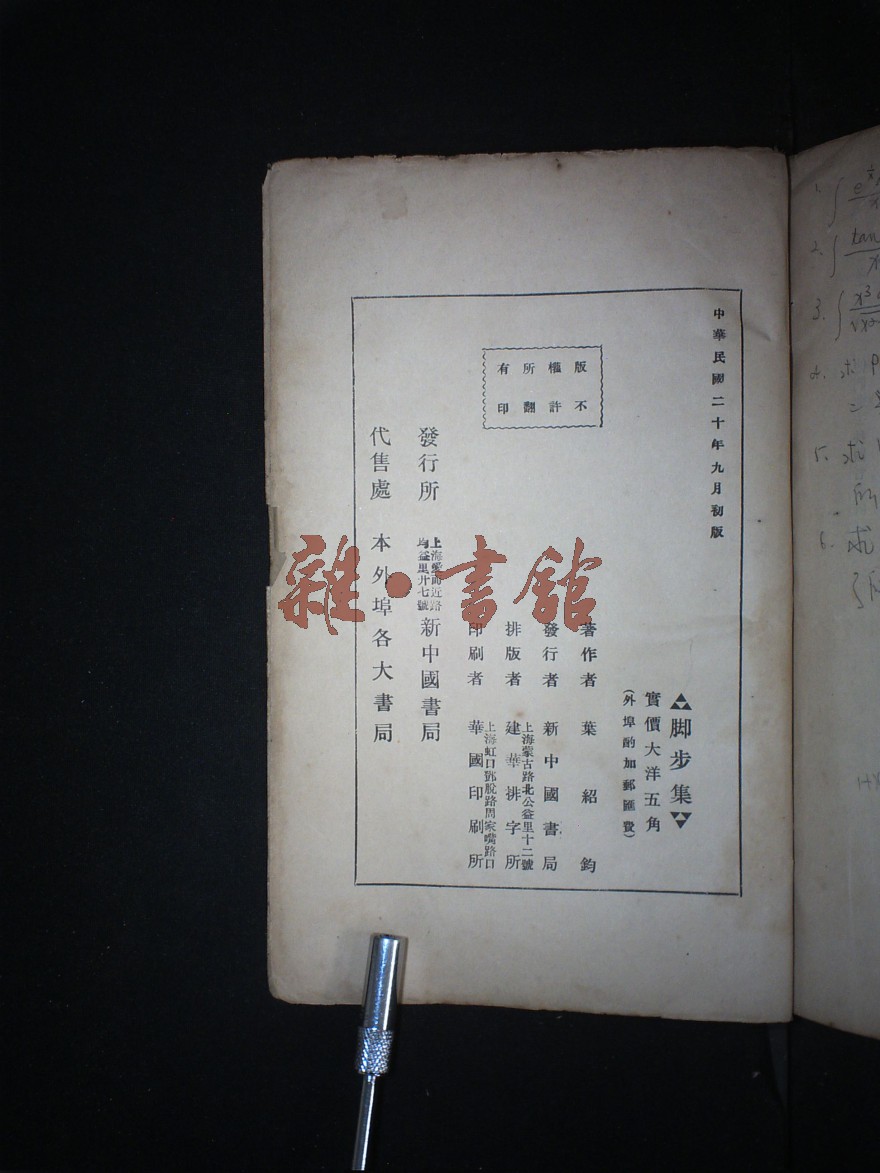 中華民國二十年九月初版
脚步集
實價大洋五角
(外埠酌加郵匯費)
版權所有
不許翻印
著作者 葉紹鈞
發行者 新中國書局
上海蒙古路北公益里十二號
排版者 建華排字所
上海虹口鄧脫路周家嘴路口
印刷者 華國印刷所
發行所 上海愛而近路均益里廿七號 新中國書局
代售處 本外埠各大書局
雜·書館
1. ∫
2. ∫ tan
3. ∫ x³
4. 求
5. 求
6. 求